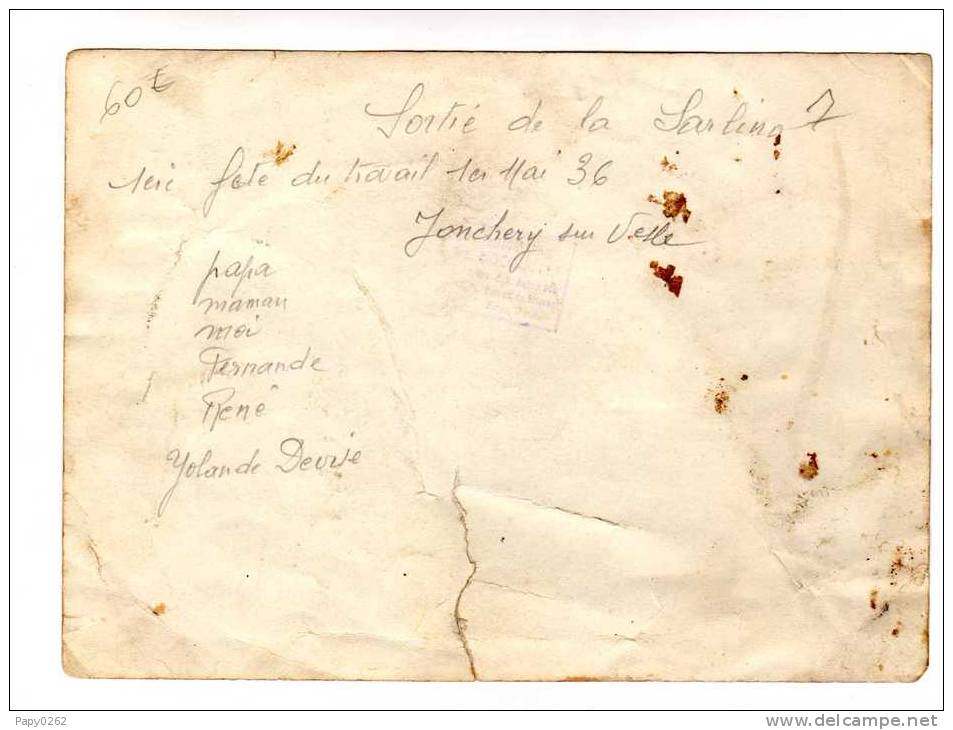 60 €
Sortie de la Sarlino 7
1ere fete du travail 1er Mai 36
Jonchery sur Vesle
papa
maman
moi
Fernande
René
Yolande Devrie
Papy0262
www.delcampe.net